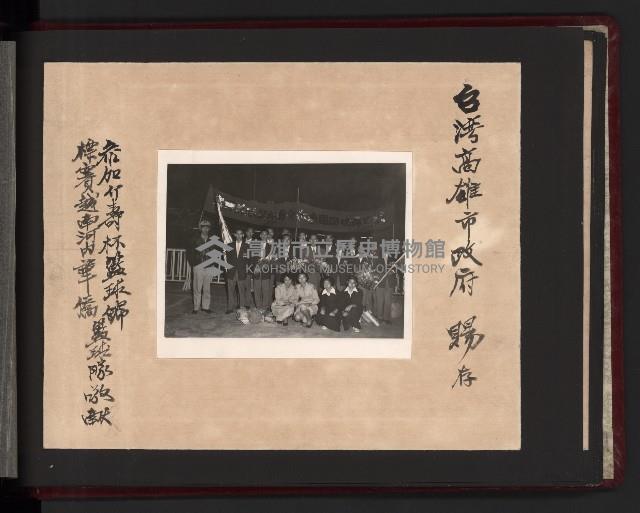 台湾高雄市政府 賜存
参加介壽杯籃球錦
標賽越南河内華僑籃球隊敬献
高雄市立歷史博物館
KAOHSIUNG MUSEUM OF HISTORY